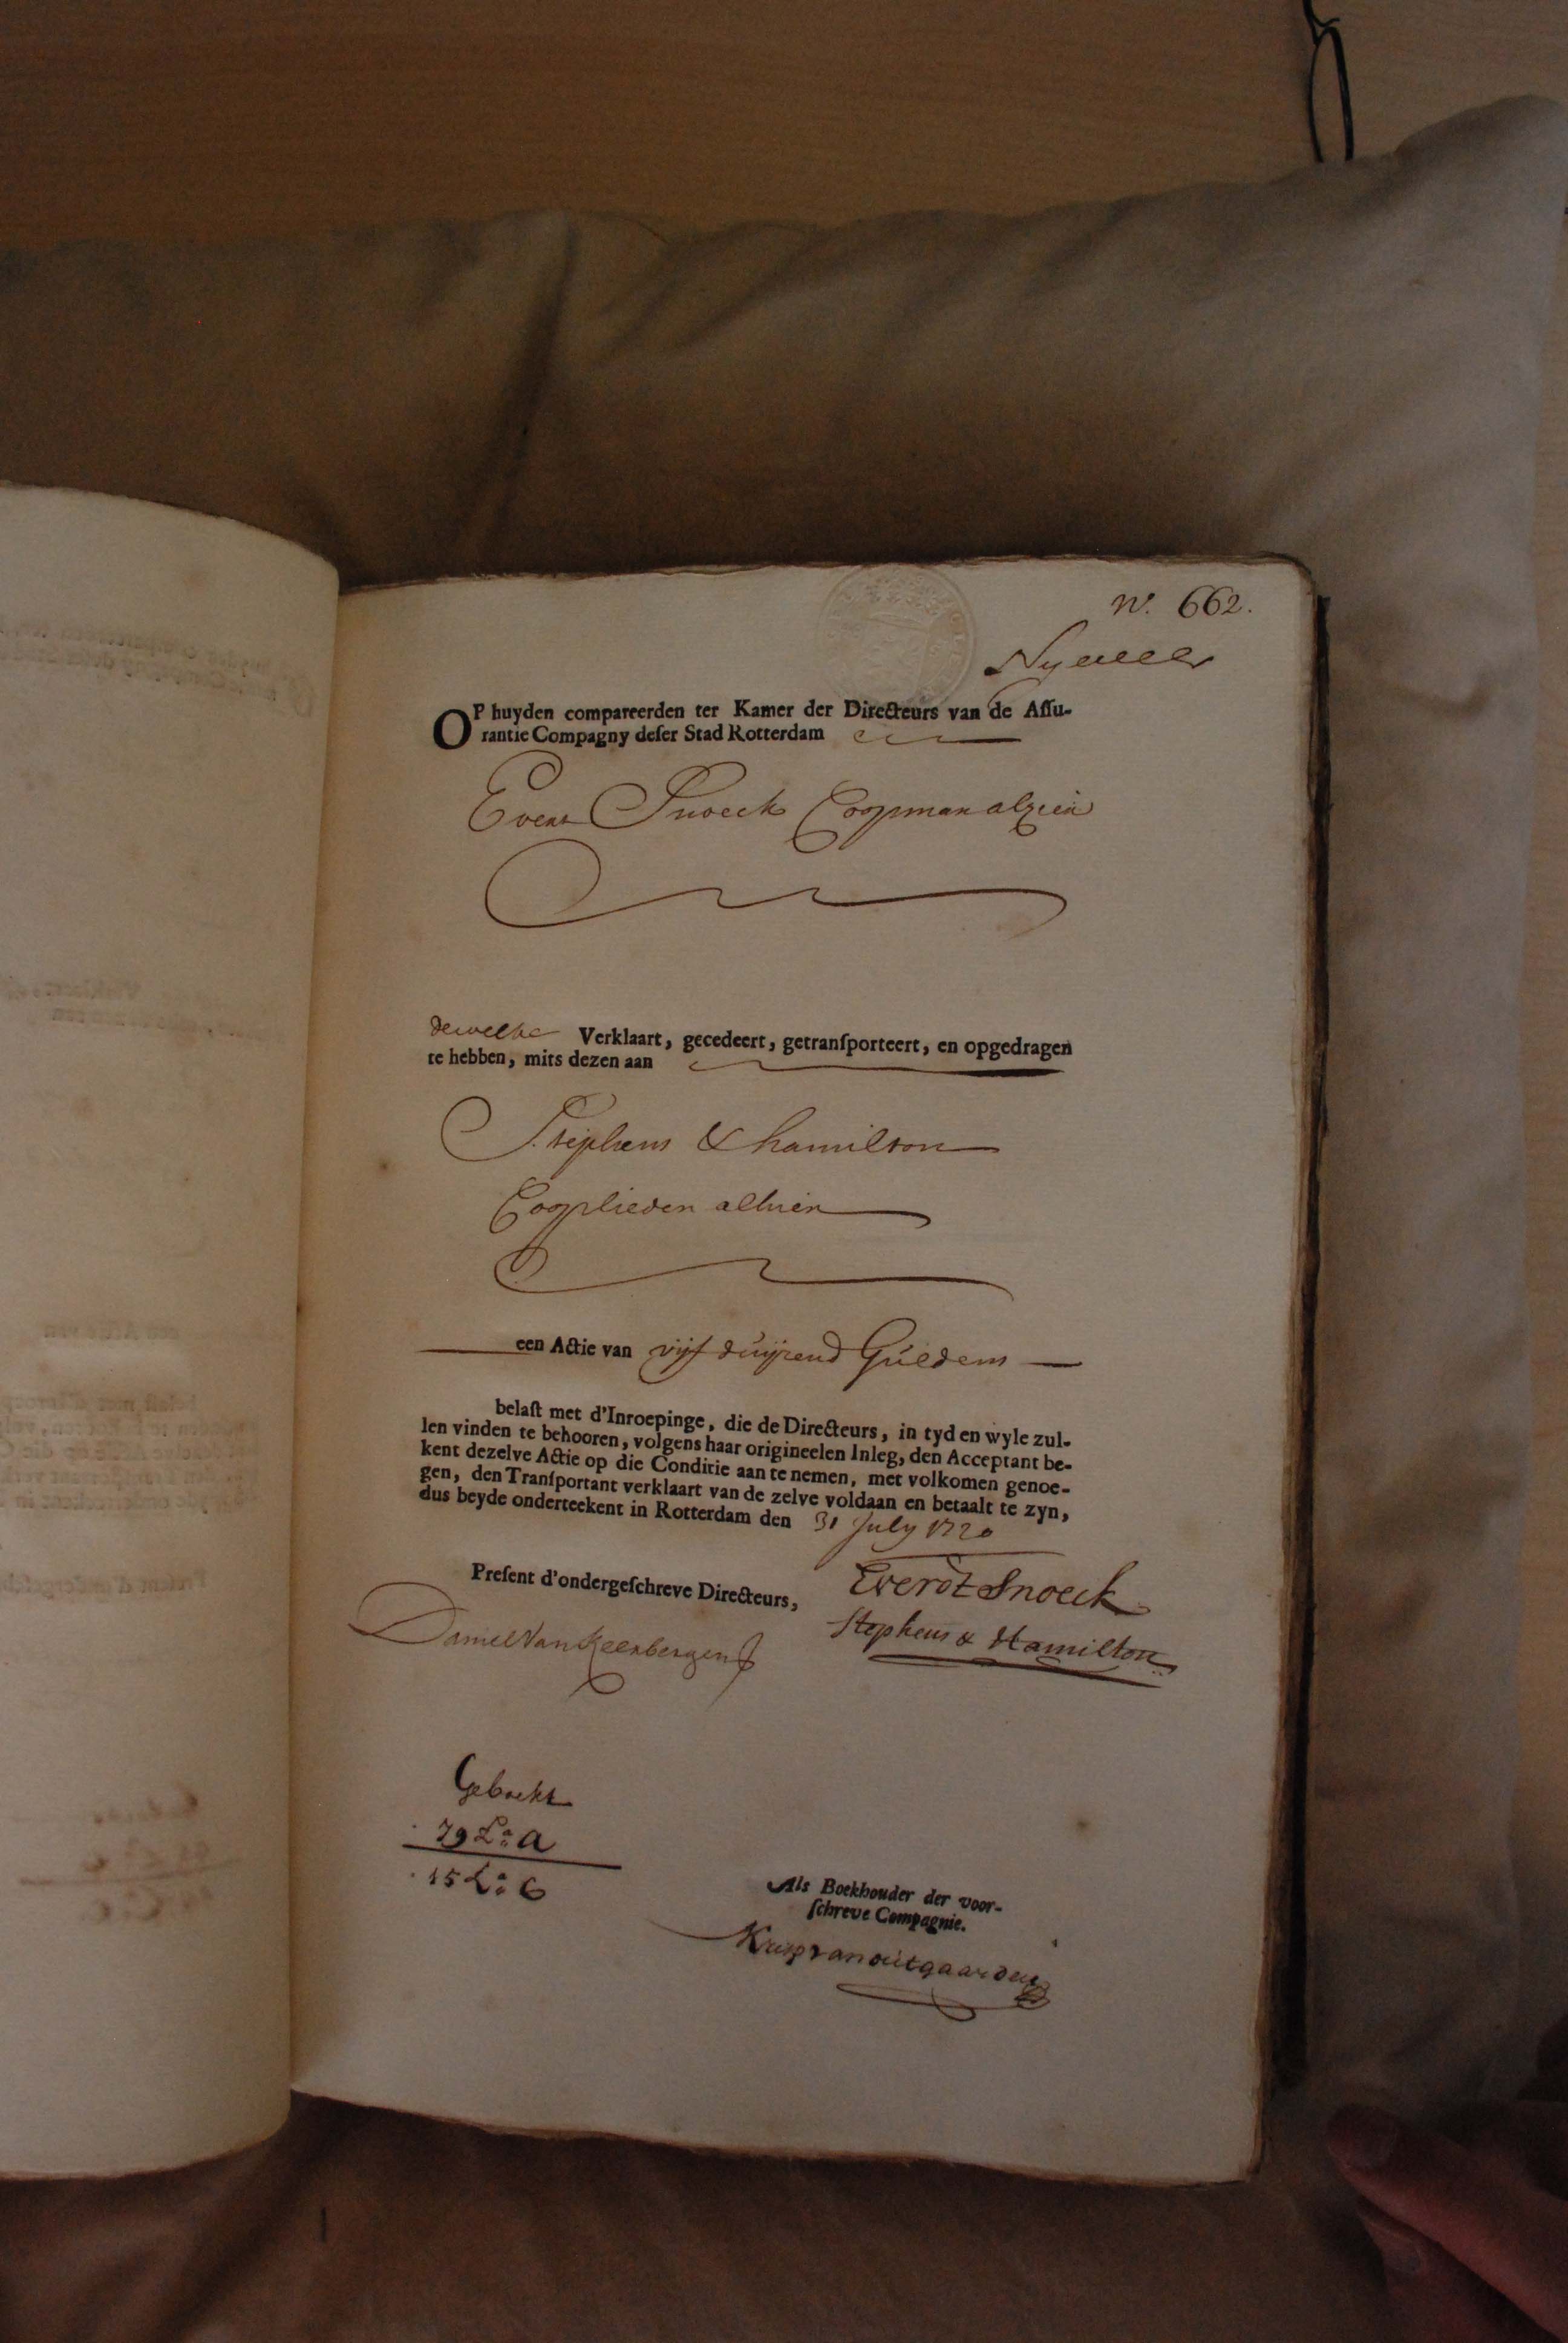 N.º 662.
OP huyden compareerden ter Kamer der Directeurs van de Assu-
rantie Compagny deser Stad Rotterdam
Evert Snoeck Coopman alhier
dewelke Verklaart, gecedeert, getransporteert, en opgedragen
te hebben, mits dezen aan
Stephens & hamilton
Cooplieden alhier
een Actie van vijf duijzend Guldens
belast met d'Inroepinge, die de Directeurs, in tyd en wyle zul-
len vinden te behooren, volgens haar origineelen Inleg, den Acceptant be-
kent dezelve Actie op die Conditie aan te nemen, met volkomen genoe-
gen, den Transportant verklaart van de zelve voldaan en betaalt te zyn,
dus beyde onderteekent in Rotterdam den 31 July 1720
Present d'ondergeschreve Directeurs,
Everdt Snoeck
Stephens & Hamilton
Daniel Van Keerbergen
Geboekt
79 La: A
15 La: C
Als Boekhouder der voor-
schreve Compagnie.